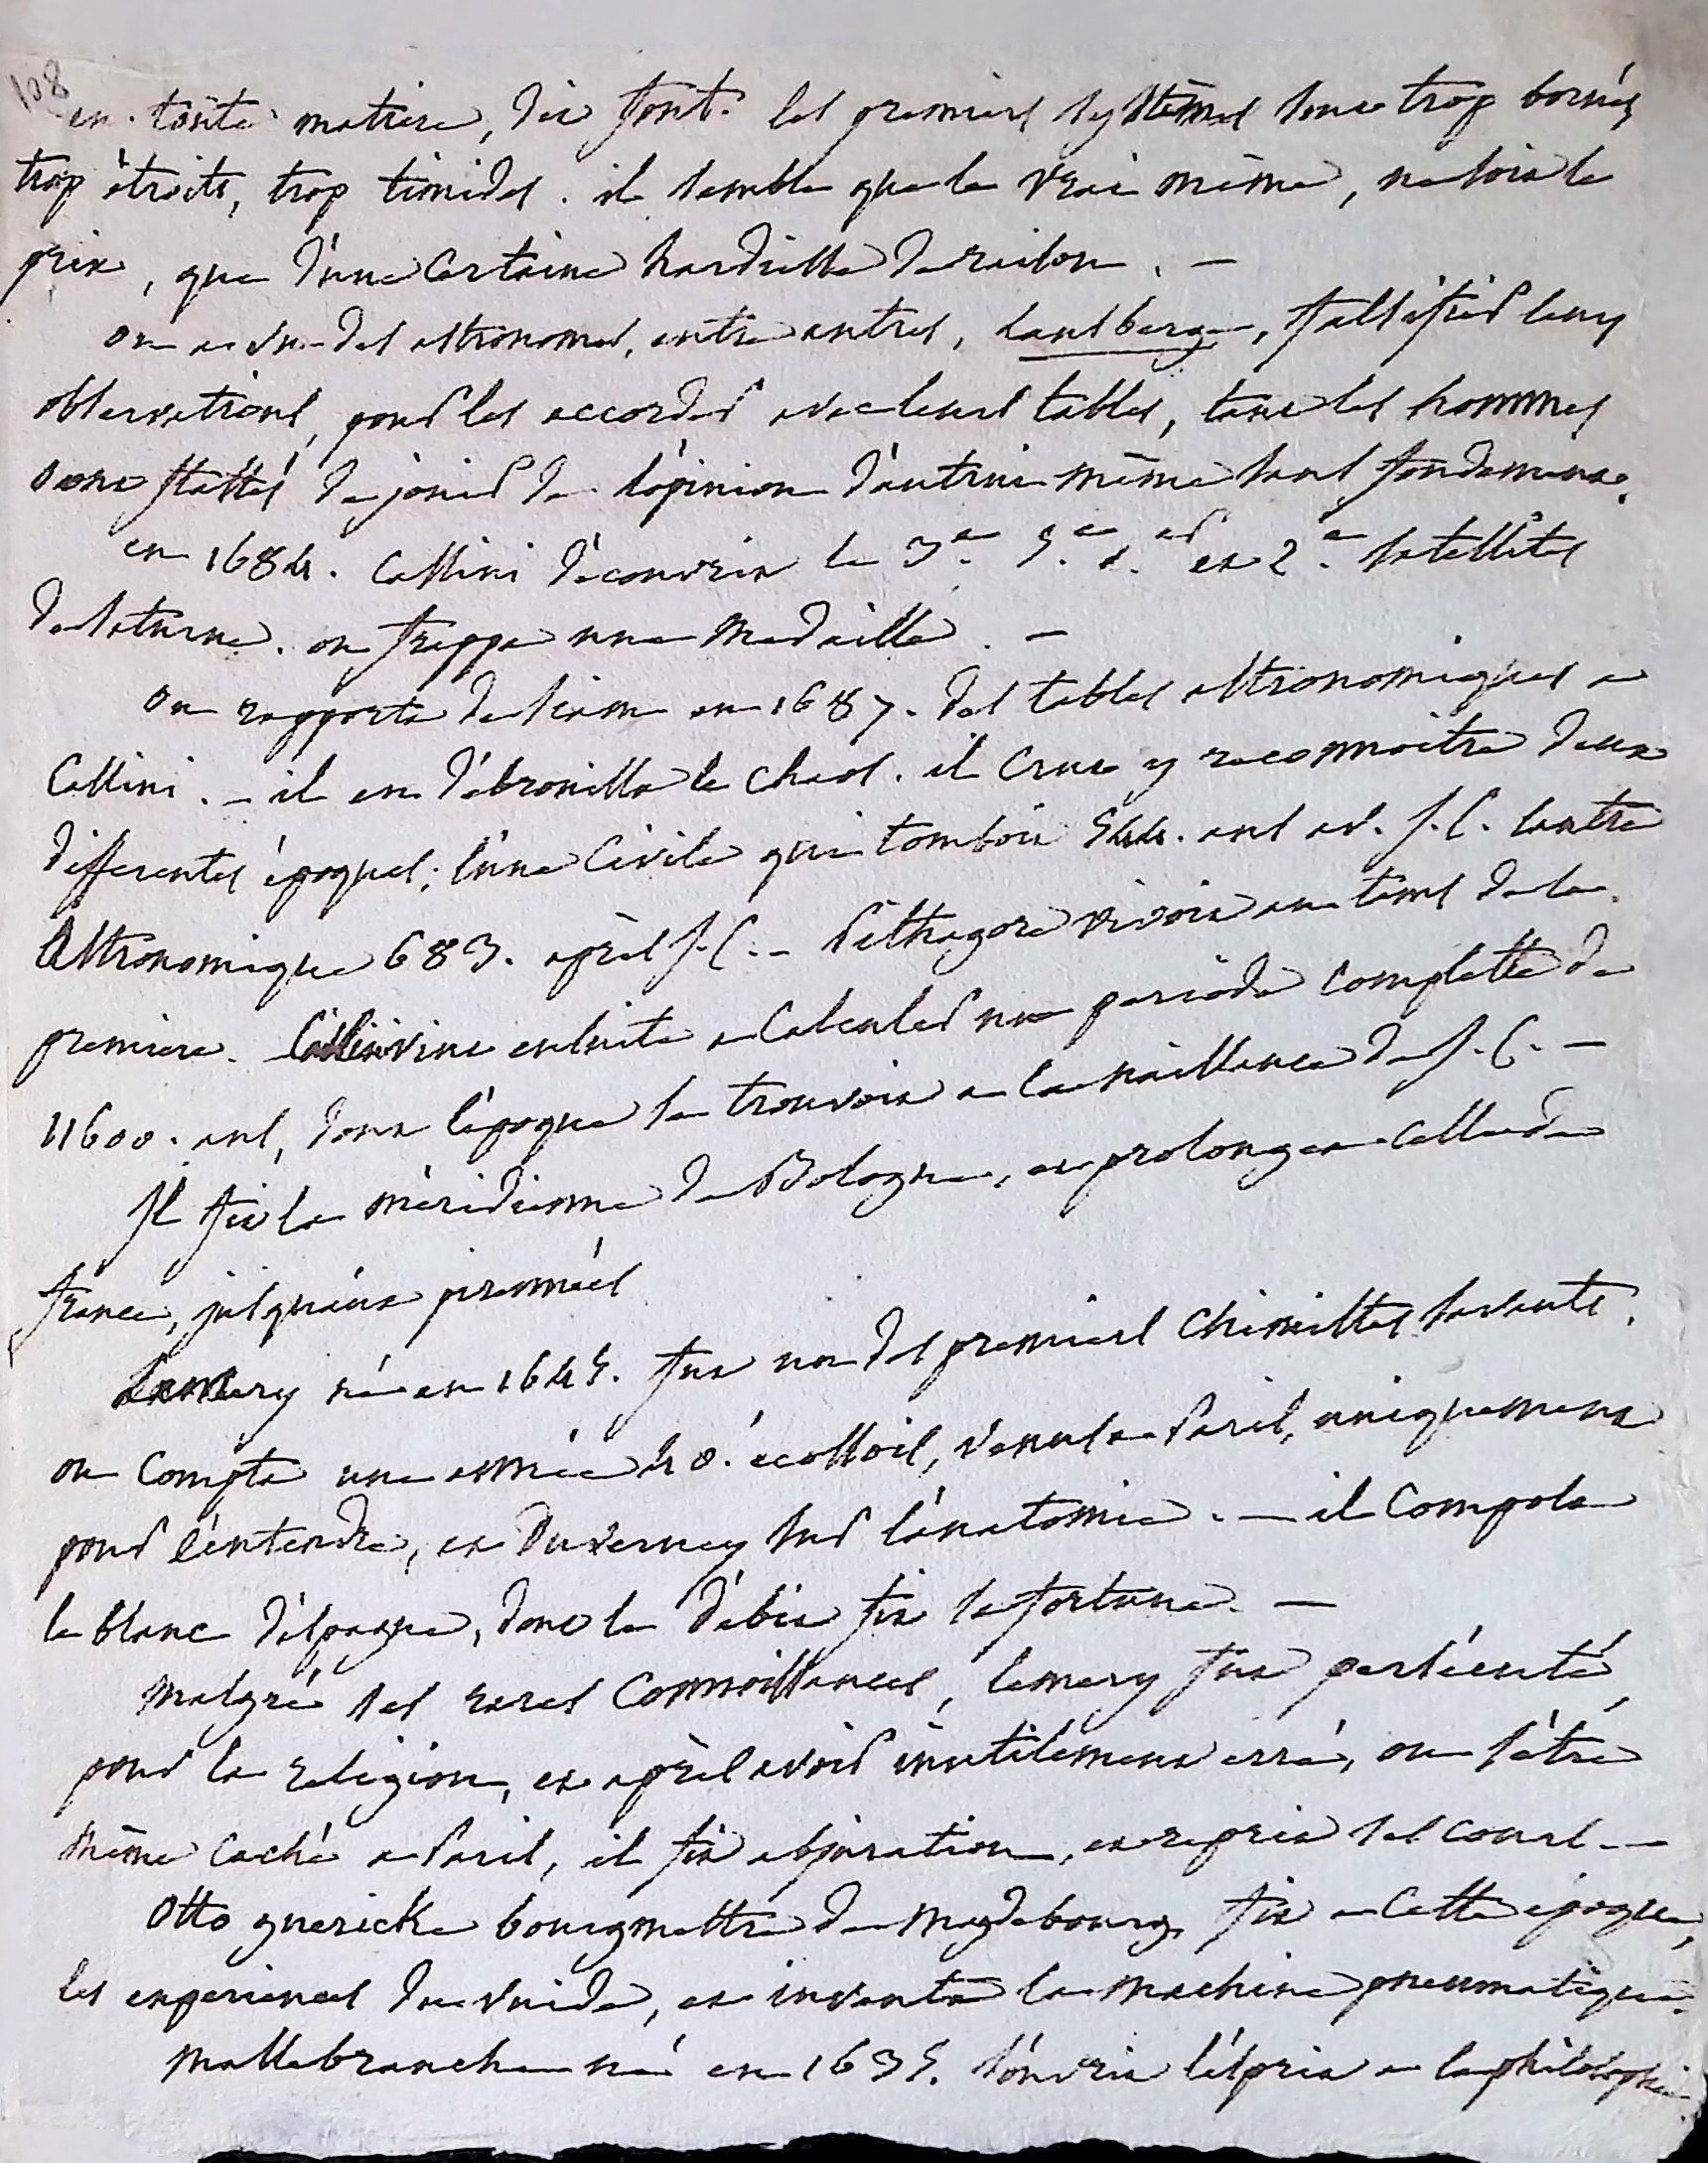 108
en toute matiere, dit font. les premiers systêmes sont trop bornés
trop étroits, trop timides. il semble que le vrai même, ne soit le
prix, que d'une certaine hardiesse de raison. —
on a vu des astronomes, entre autres, Lansberge, falsifier leurs
observations, pour les accorder avec leurs tables, tant les hommes
sont flattés de jouir de l'opinion d'autrui même sans fondement.
en 1684. Cassini découvrit le 3.e 5.e 1.er et 2.e satellites
de Saturne. on frappa une medaille. —
on rapporta de Siam en 1687. des tables astronomiques a
Cassini. – il en débrouilla le chaos. il crut y reconnoitre deux
differentes époques; l'une civile qui tomboit 544. ans av. J.C. l'autre
Astronomique 683. après J.C. – Pithagore vivoit au tems de la
premiere. Cassini vint ensuite a calculer une periode complette de
11600. ans, dont l'époque se trouvoit a la naissance de J.C. —
Il fit la méridienne de Bologne, et prolongea celle de
france, jusqu'aux pirennées
Lemery né en 1645. fut un des premiers chimistes savants.
on compta une année 40. écossois, venus a Paris, uniquement
pour l'entendre, et Duverney sur l'anatomie. — il composa
le blanc d'espagne, dont le débit fit sa fortune. —
malgré ses rares connoissances, lemery fut persécuté,
pour la religion, et après avoir inutilement erré, ou s'être
même caché a Paris, il fit abjuration, et reprit ses cours —
Otto guericke bourgmettre de Magdebourg fit a cette époque,
les experiences du vuide, et inventa la machine pneumatique.
Mallebranche né en 1635. s'ouvrit l'esprit a la philosophie